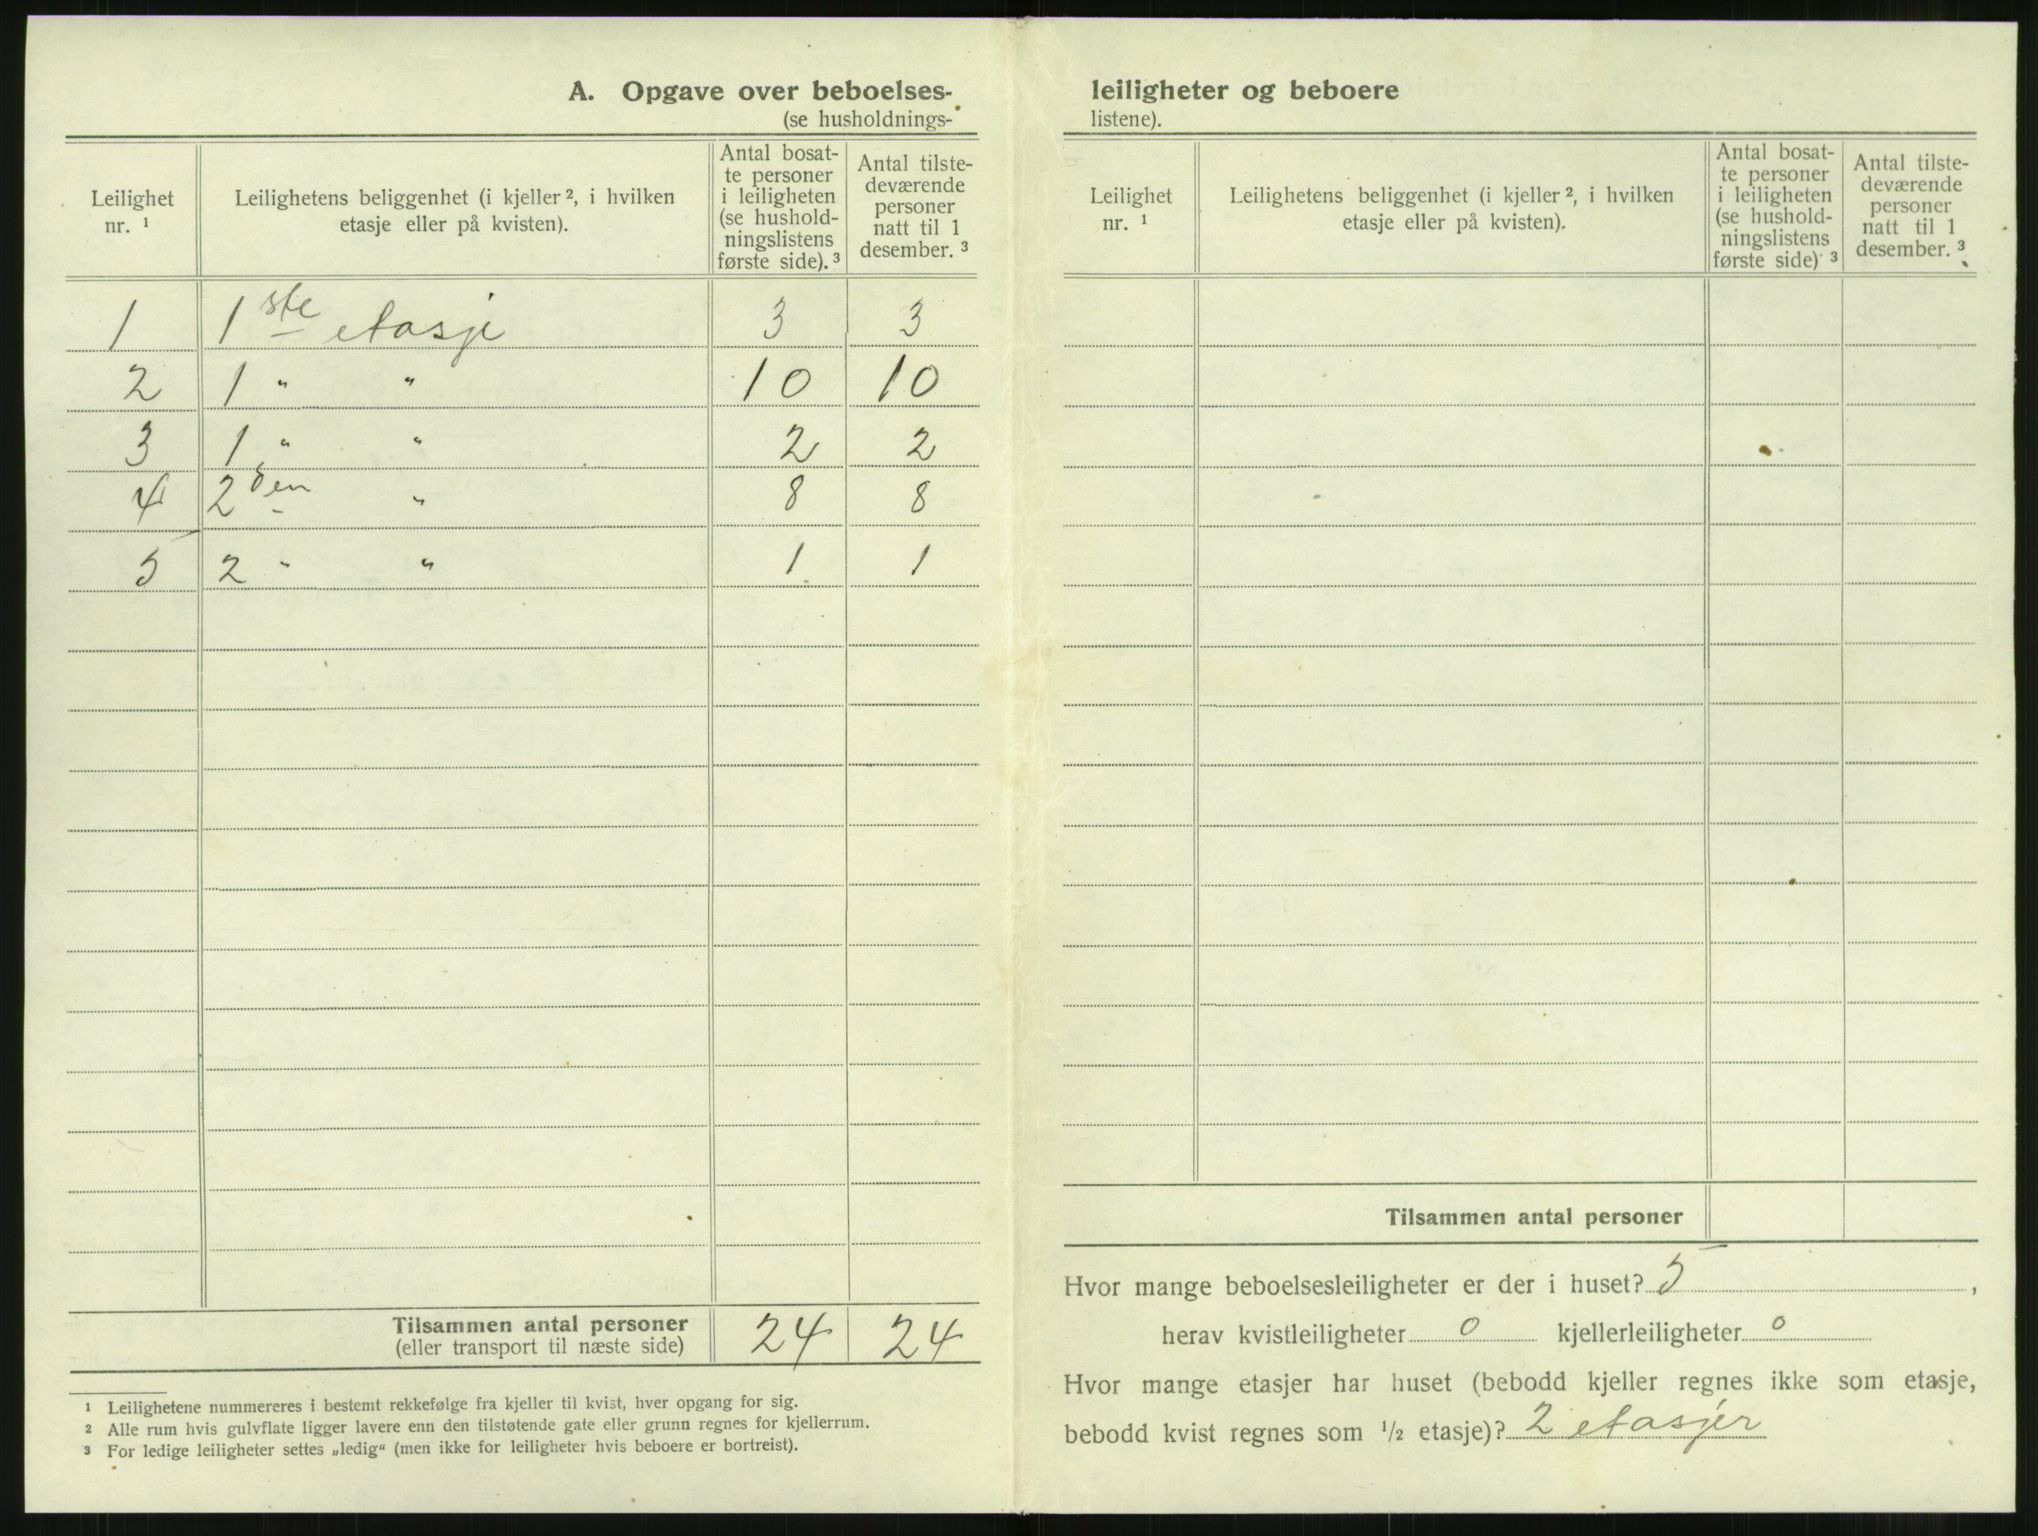 A. Opgave over beboelses-
(se husholdnings-
Leilighet nr. ¹
Leilighetens beliggenhet (i kjeller ², i hvilken etasje eller på kvisten).
Antal bosat-
te personer
i leiligheten
(se hushold-
ningslistens
første side). ³
Antal tilste-
deværende
personer
natt til 1
desember. ³
1 1ste etasje 3 3
2 1 " " 10 10
3 1 " " 2 2
4 2den " 8 8
5 2 " " 1 1
Tilsammen antal personer 24 24
(eller transport til næste side)
¹ Leilighetene nummereres i bestemt rekkefølge fra kjeller til kvist, hver opgang for sig.
² Alle rum hvis gulvflate ligger lavere enn den tilstøtende gate eller grunn regnes for kjellerrum.
³ For ledige leiligheter settes „ledig“ (men ikke for leiligheter hvis beboere er bortreist).
leiligheter og beboere
listene).
Leilighet nr. ¹
Leilighetens beliggenhet (i kjeller ², i hvilken etasje eller på kvisten).
Antal bosat-
te personer
i leiligheten
(se hushold-
ningslistens
første side) ³
Antal tilste-
deværende
personer
natt til 1
desember. ³
Tilsammen antal personer
Hvor mange beboelsesleiligheter er der i huset? 5 ,
herav kvistleiligheter 0 kjellerleiligheter 0
Hvor mange etasjer har huset (bebodd kjeller regnes ikke som etasje,
bebodd kvist regnes som ½ etasje)? 2 etasjer